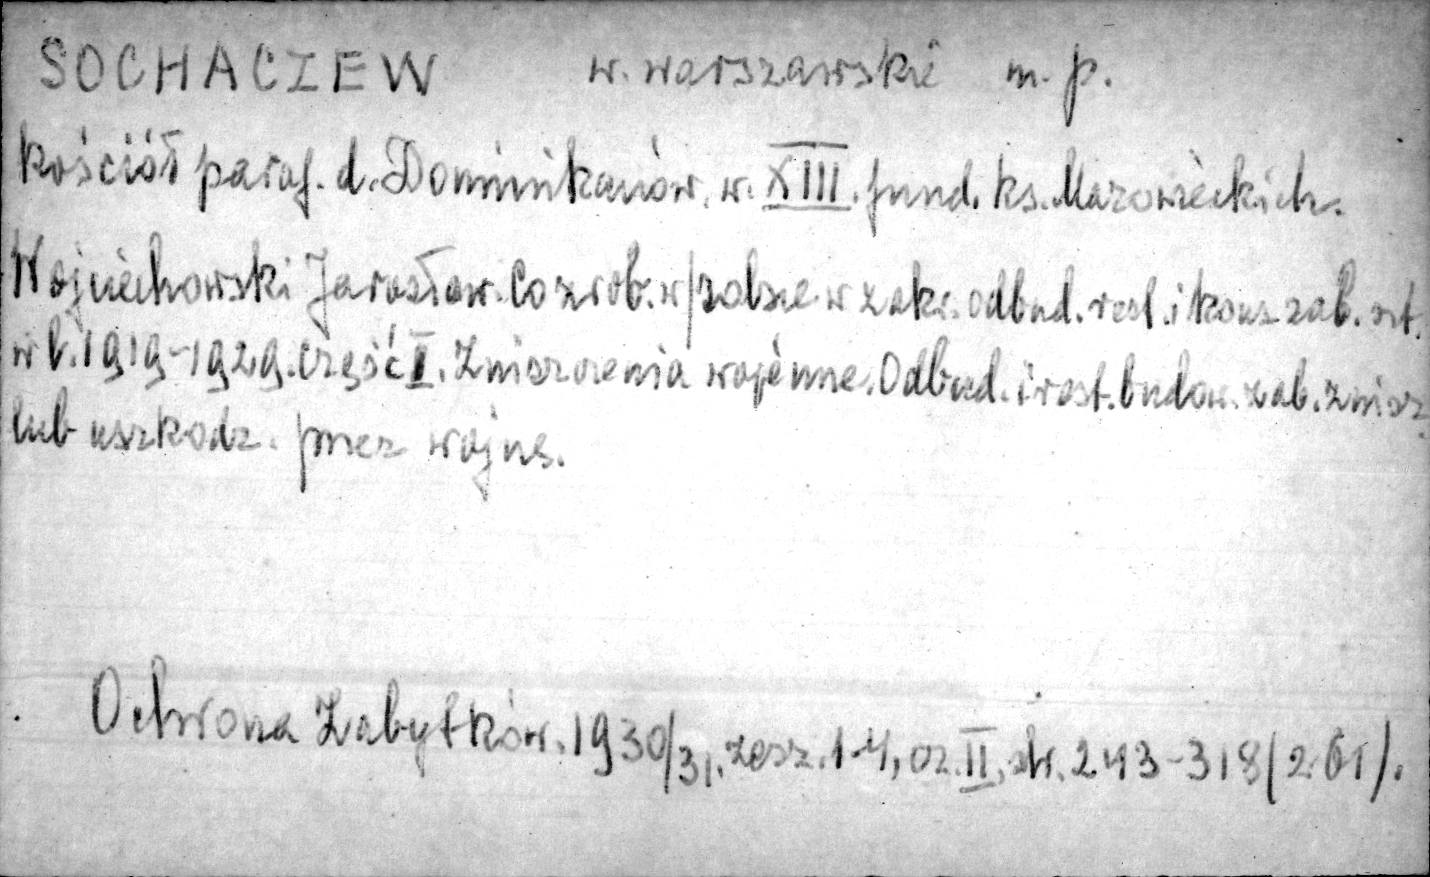 SOCHACZEW w. warszawskie m. p.
kościół paraf. d. Dominikanów, w. XIII. fund. ks. Mazowieckich.
Wojciechowski Jarosław. Co zrob. w Polsce w zakr. odbud. rest. i kons. zab. szt.
w l. 1919-1929. Część I. Zniszczenia wojenne. Odbud. i rest. budow. zab. znisz.
lub uszkodz. przez wojnę.
Ochrona Zabytków. 1930/31. zesz. 1-4, cz. II, str. 243-318 (261).